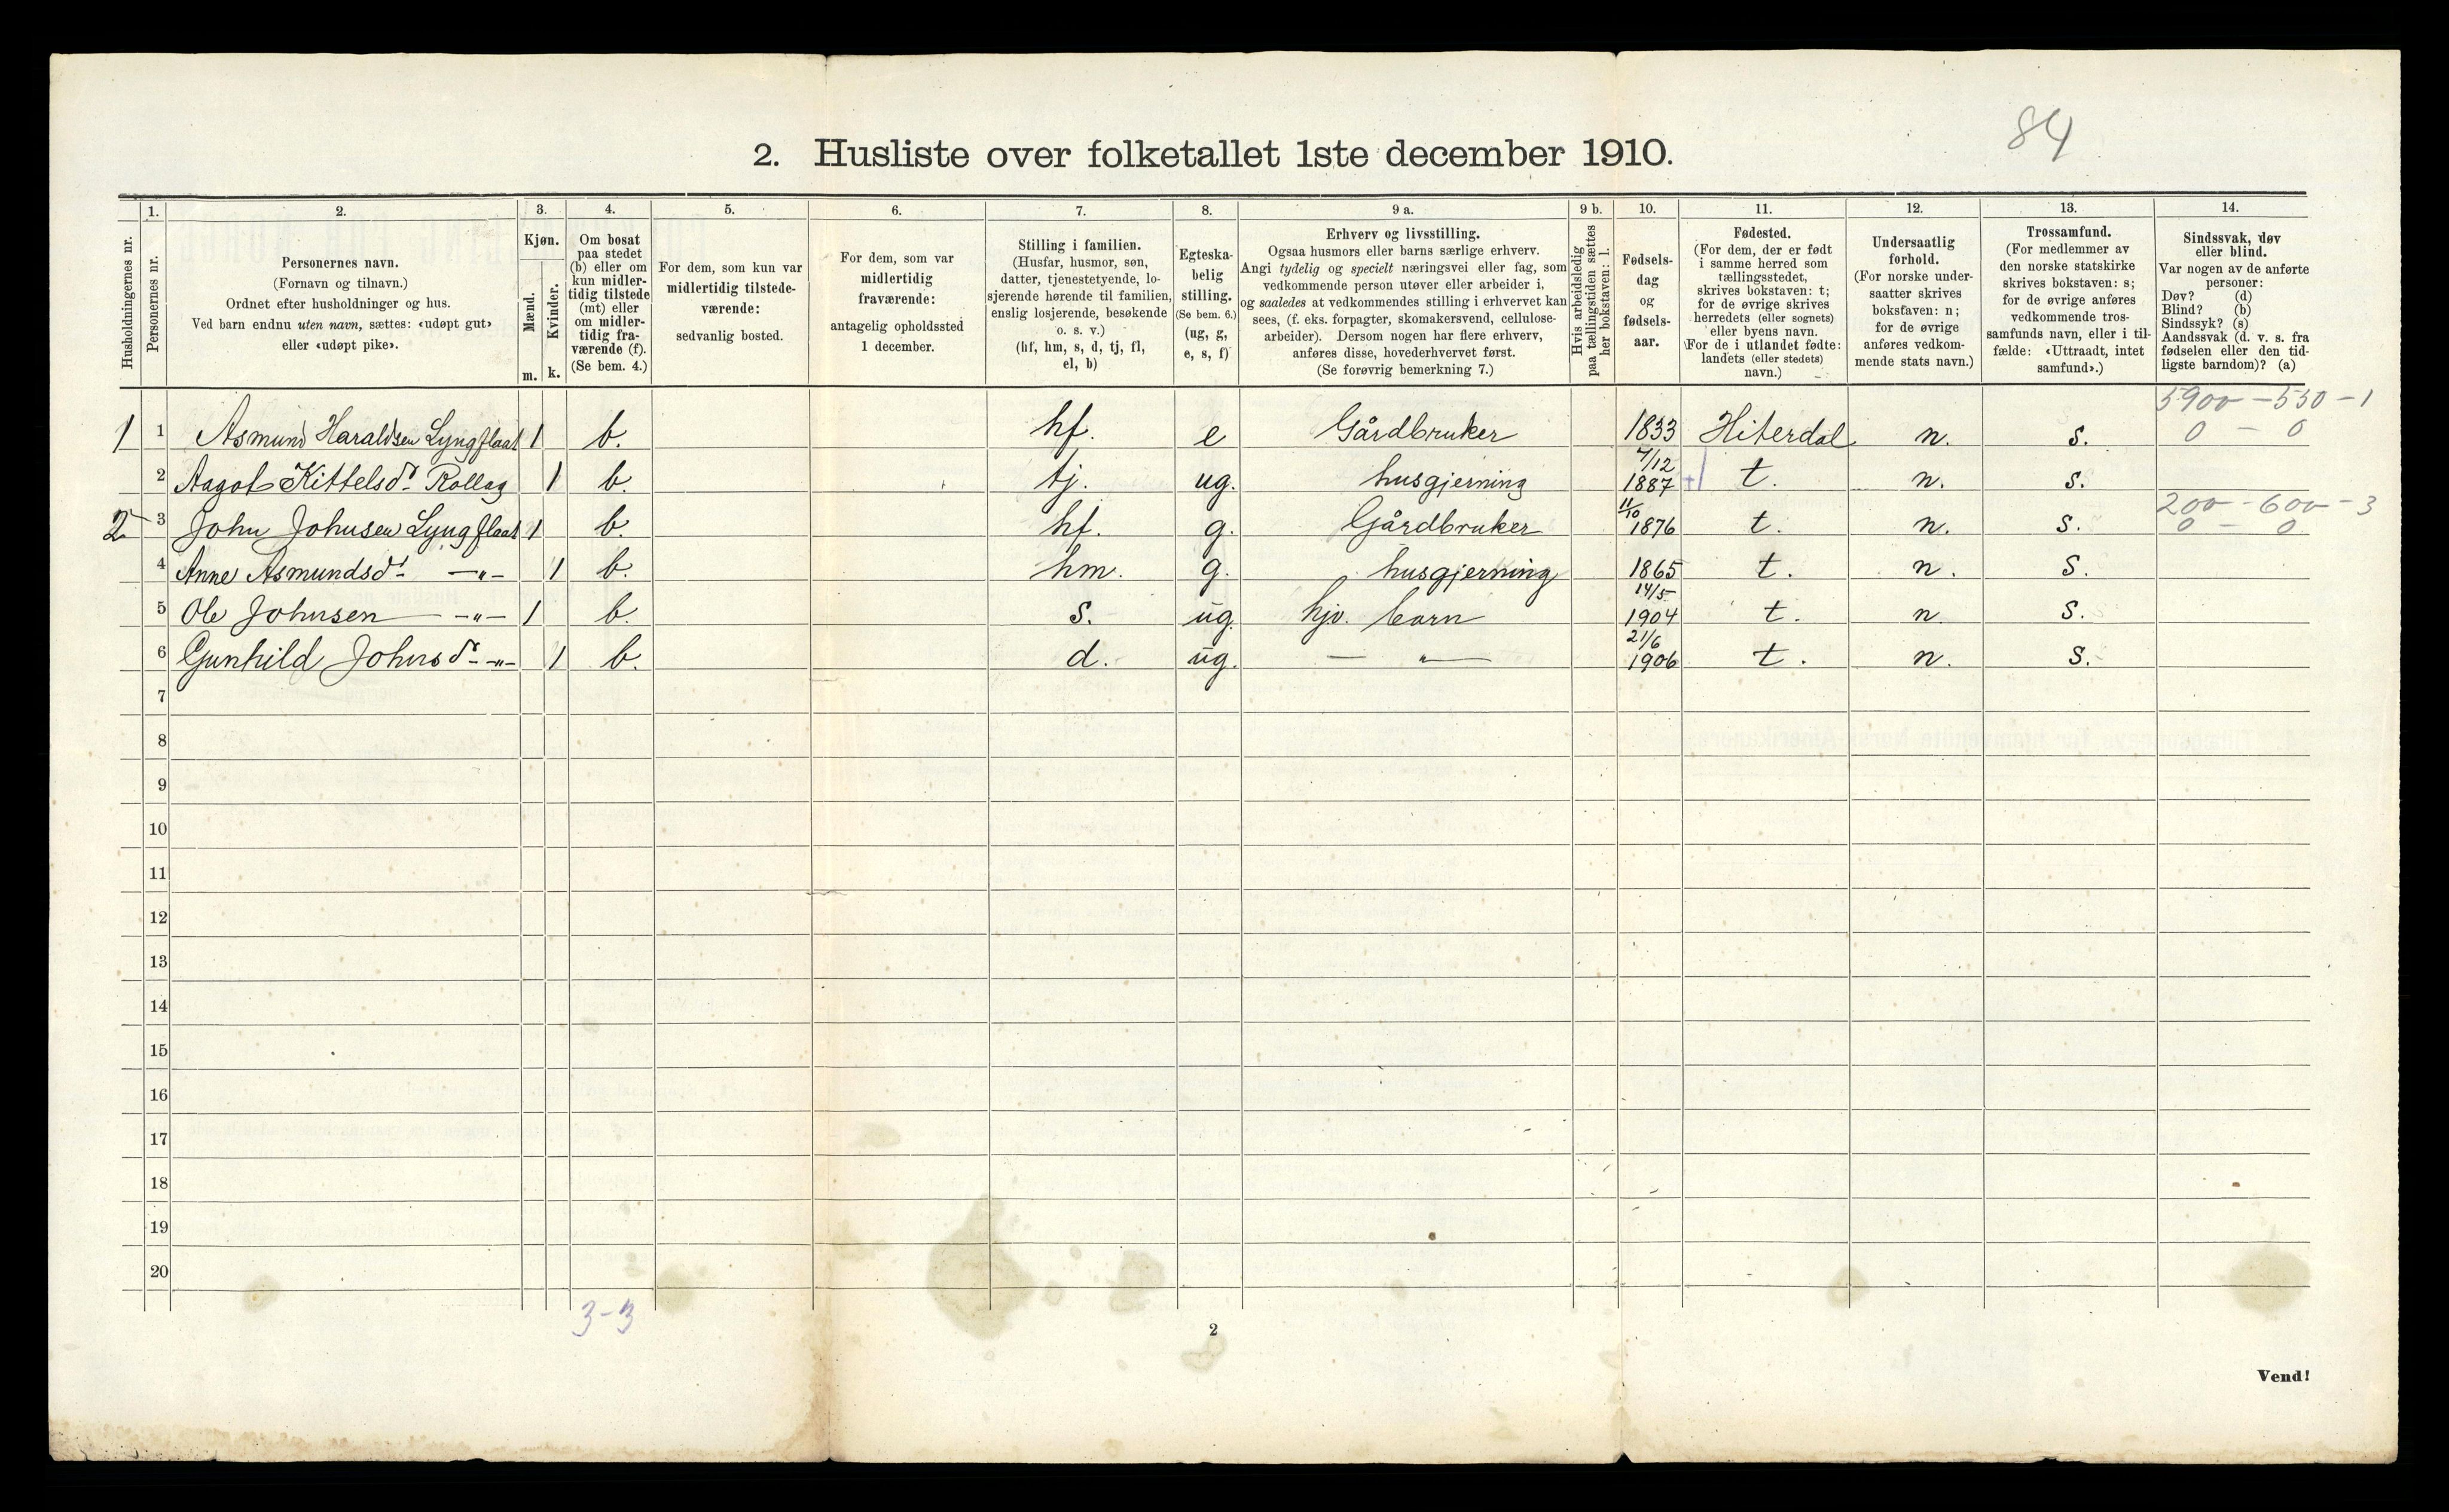 84
2. Husliste over folketallet 1ste december 1910.
Husholdningernes nr.
1.
Personernes nr.
2.
Personernes navn.
(Fornavn og tilnavn.)
Ordnet efter husholdninger og hus.
Ved barn endnu uten navn, sættes: «udøpt gut»
eller «udøpt pike».
3.
Kjøn.
Mænd.
Kvinder.
m. k.
4.
Om bosat
paa stedet
(b) eller om
kun midler-
tidig tilstede
(mt) eller
om midler-
tidig fra-
værende (f).
(Se bem. 4.)
5.
For dem, som kun var
midlertidig tilstede-
værende:
sedvanlig bosted.
6.
For dem, som var
midlertidig
fraværende:
antagelig opholdssted
1 december.
7.
Stilling i familien.
(Husfar, husmor, søn,
datter, tjenestetyende, lo-
sjerende hørende til familien,
enslig losjerende, besøkende
o. s. v.)
(hf, hm, s, d, tj, fl,
el, b)
8.
Egteska-
belig
stilling.
(Se bem. 6.)
(ug, g,
e, s, f)
9 a.
Erhverv og livsstilling.
Ogsaa husmors eller barns særlige erhverv.
Angi tydelig og specielt næringsvei eller fag, som
vedkommende person utøver eller arbeider i,
og saaledes at vedkommendes stilling i erhvervet kan
sees, (f. eks. forpagter, skomakersvend, cellulose-
arbeider). Dersom nogen har flere erhverv,
anføres disse, hovederhvervet først.
(Se forøvrig bemerkning 7.)
9 b.
Hvis arbeidsledig
paa tællingstiden sættes
her bokstaven: l.
10.
Fødsels-
dag
og
fødsels-
aar.
11.
Fødested.
(For dem, der er født
i samme herred som
tællingsstedet,
skrives bokstaven: t;
for de øvrige skrives
herredets (eller sognets)
eller byens navn.
For de i utlandet fødte:
landets (eller stedets)
navn.)
12.
Undersaatlig
forhold.
(For norske under-
saatter skrives
bokstaven: n;
for de øvrige
anføres vedkom-
mende stats navn.)
13.
Trossamfund.
(For medlemmer av
den norske statskirke
skrives bokstaven: s;
for de øvrige anføres
vedkommende tros-
samfunds navn, eller i til-
fælde: «Uttraadt, intet
samfund».)
14.
Sindssvak, døv
eller blind.
Var nogen av de anførte
personer:
Døv? (d)
Blind? (b)
Sindssyk? (s)
Aandssvak (d. v. s. fra
fødselen eller den tid-
ligste barndom)? (a)
5900 - 550 - 1
1 1 Asmund Haraldsen Lyngflaat 1 b. hf. e Gårdbruker 1833 Hiterdal n. s. 0 - 0
7/12
2 Aagot Kittelsdr Rollag 1 b. tj. ug. husgjerning 1887 t. n. s.
11/10 200 - 600 - 3
2 3 John Johnsen Lyngflaat 1 b. hf. g. Gårdbruker 1876 t. n. s. 0 - 0
4 Anne Asmundsdr -"- 1 b. hm. g. husgjerning 1865 t. n. s.
14/5
5 Ole Johnsen -"- 1 b. s. ug. hjv. barn 1904 t. n. s.
21/6
6 Gunhild Johnsdr -"- 1 b. d. ug. - " - 1906 t. n. s.
7
8
9
10
11
12
13
14
15
16
17
18
19
20
3-3
2
Vend!